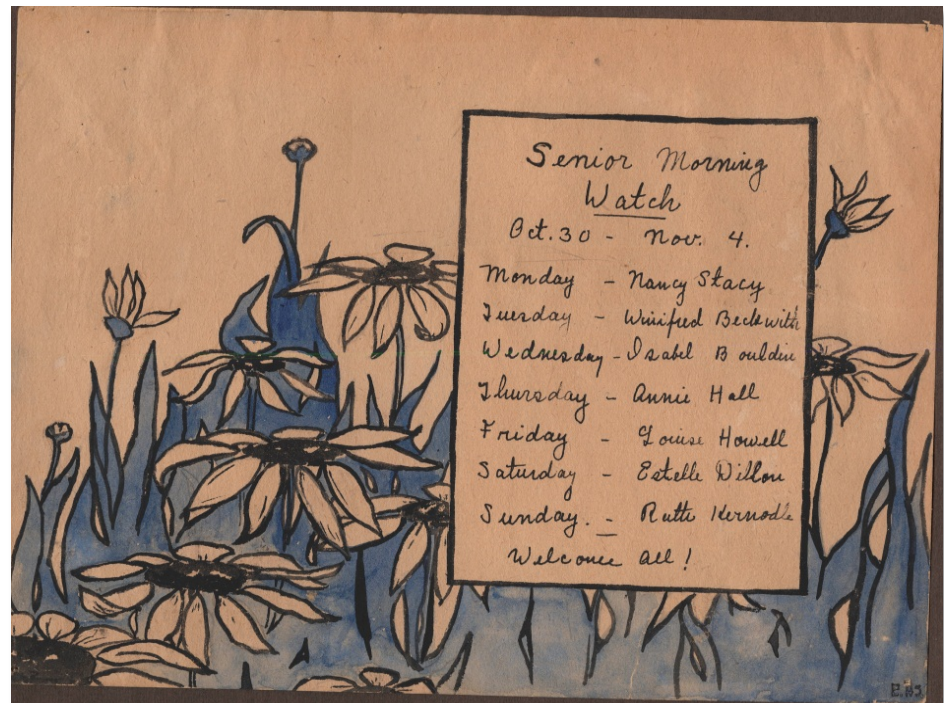 Senior Morning
Watch
Oct. 30 - Nov. 4.
Monday - Nancy Stacy
Tuesday - Winifred Beckwith
Wednesday - Isabel Bouldin
Thursday - Annie Hall
Friday - Louise Howell
Saturday - Estelle Dillon
Sunday. - Ruth Kernodle
Welcome all!